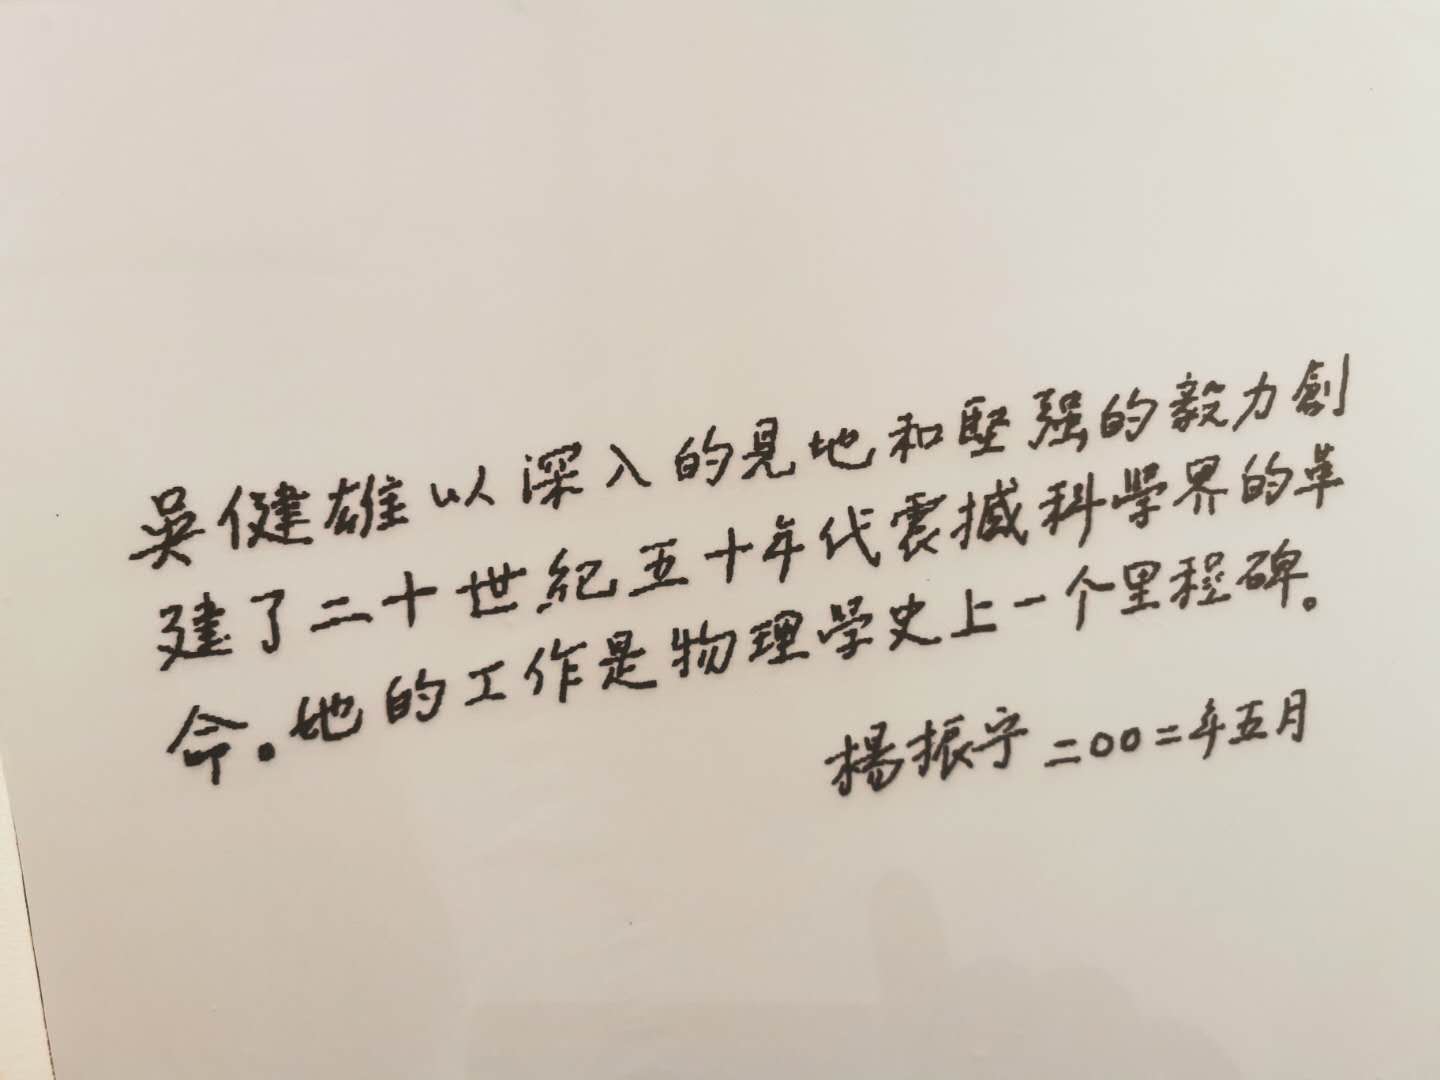 吴健雄以深入的見地和堅强的毅力創
建了二十世紀五十年代震撼科学界的革
命。她的工作是物理学史上一个里程碑。
楊振宁 二〇〇二年五月